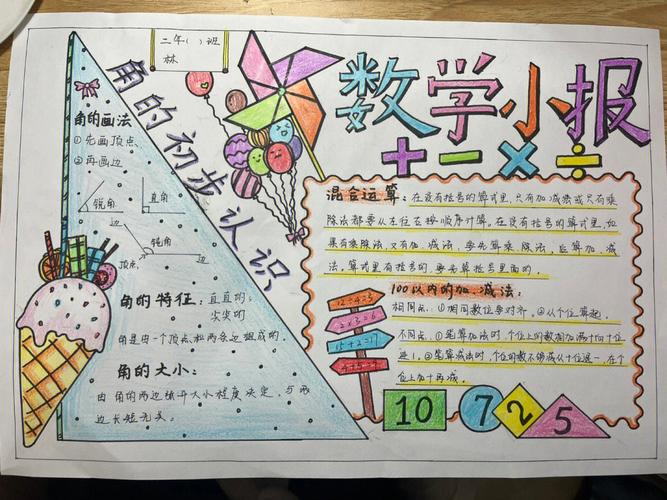 二年( )班
林
数学小报
+ - × ÷
角的初步认识
角的画法
①先画顶点
②再画边
锐角
直角
边
钝角
顶点
边
角的特征：直直的；
尖尖的
角是由一个顶点和两条边组成的。
角的大小：
由角的两边张开大小程度决定，与两
边长短无关。
混合运算：在没有括号的算式里，只有加减法或只有乘
除法都要从左往右按顺序计算，在没有括号的算式里，如
果有乘除法又有加、减法，要先算乘除法，后算加、减
法。算式里有括号的，要先算括号里面的。
100以内的加、减法：
相同点：①相同数位要对齐，②从个位算起。
不同点：①是算加法时，个位上的数相加满十向十位
进1，②是算减法时，个位的数不够减从十位退一，在个
位上加十再减。
12÷4=3
2×3=6
15+2=17
10
7
2
5